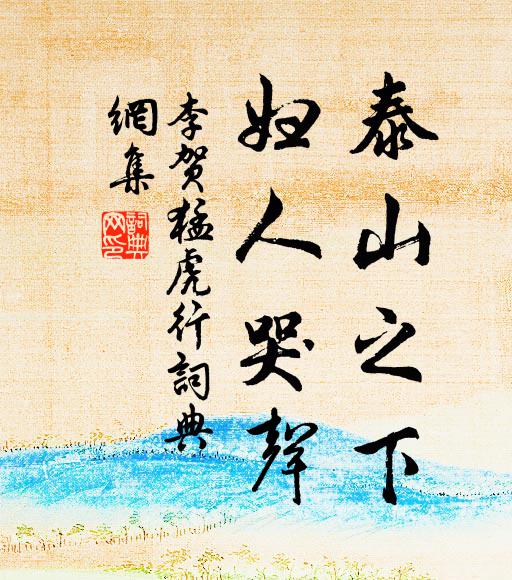 泰山之下
婦人哭聲
李賀猛虎行詞典
網集
詞典
网印